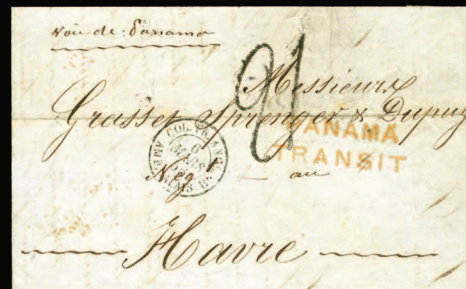 voie de Panama
21
Messieurs
Grasset Sprenger & Dupuy
PANAMA
TRANSIT
COL. FR. ANGL.
6
MARS
Neg
au
Havre